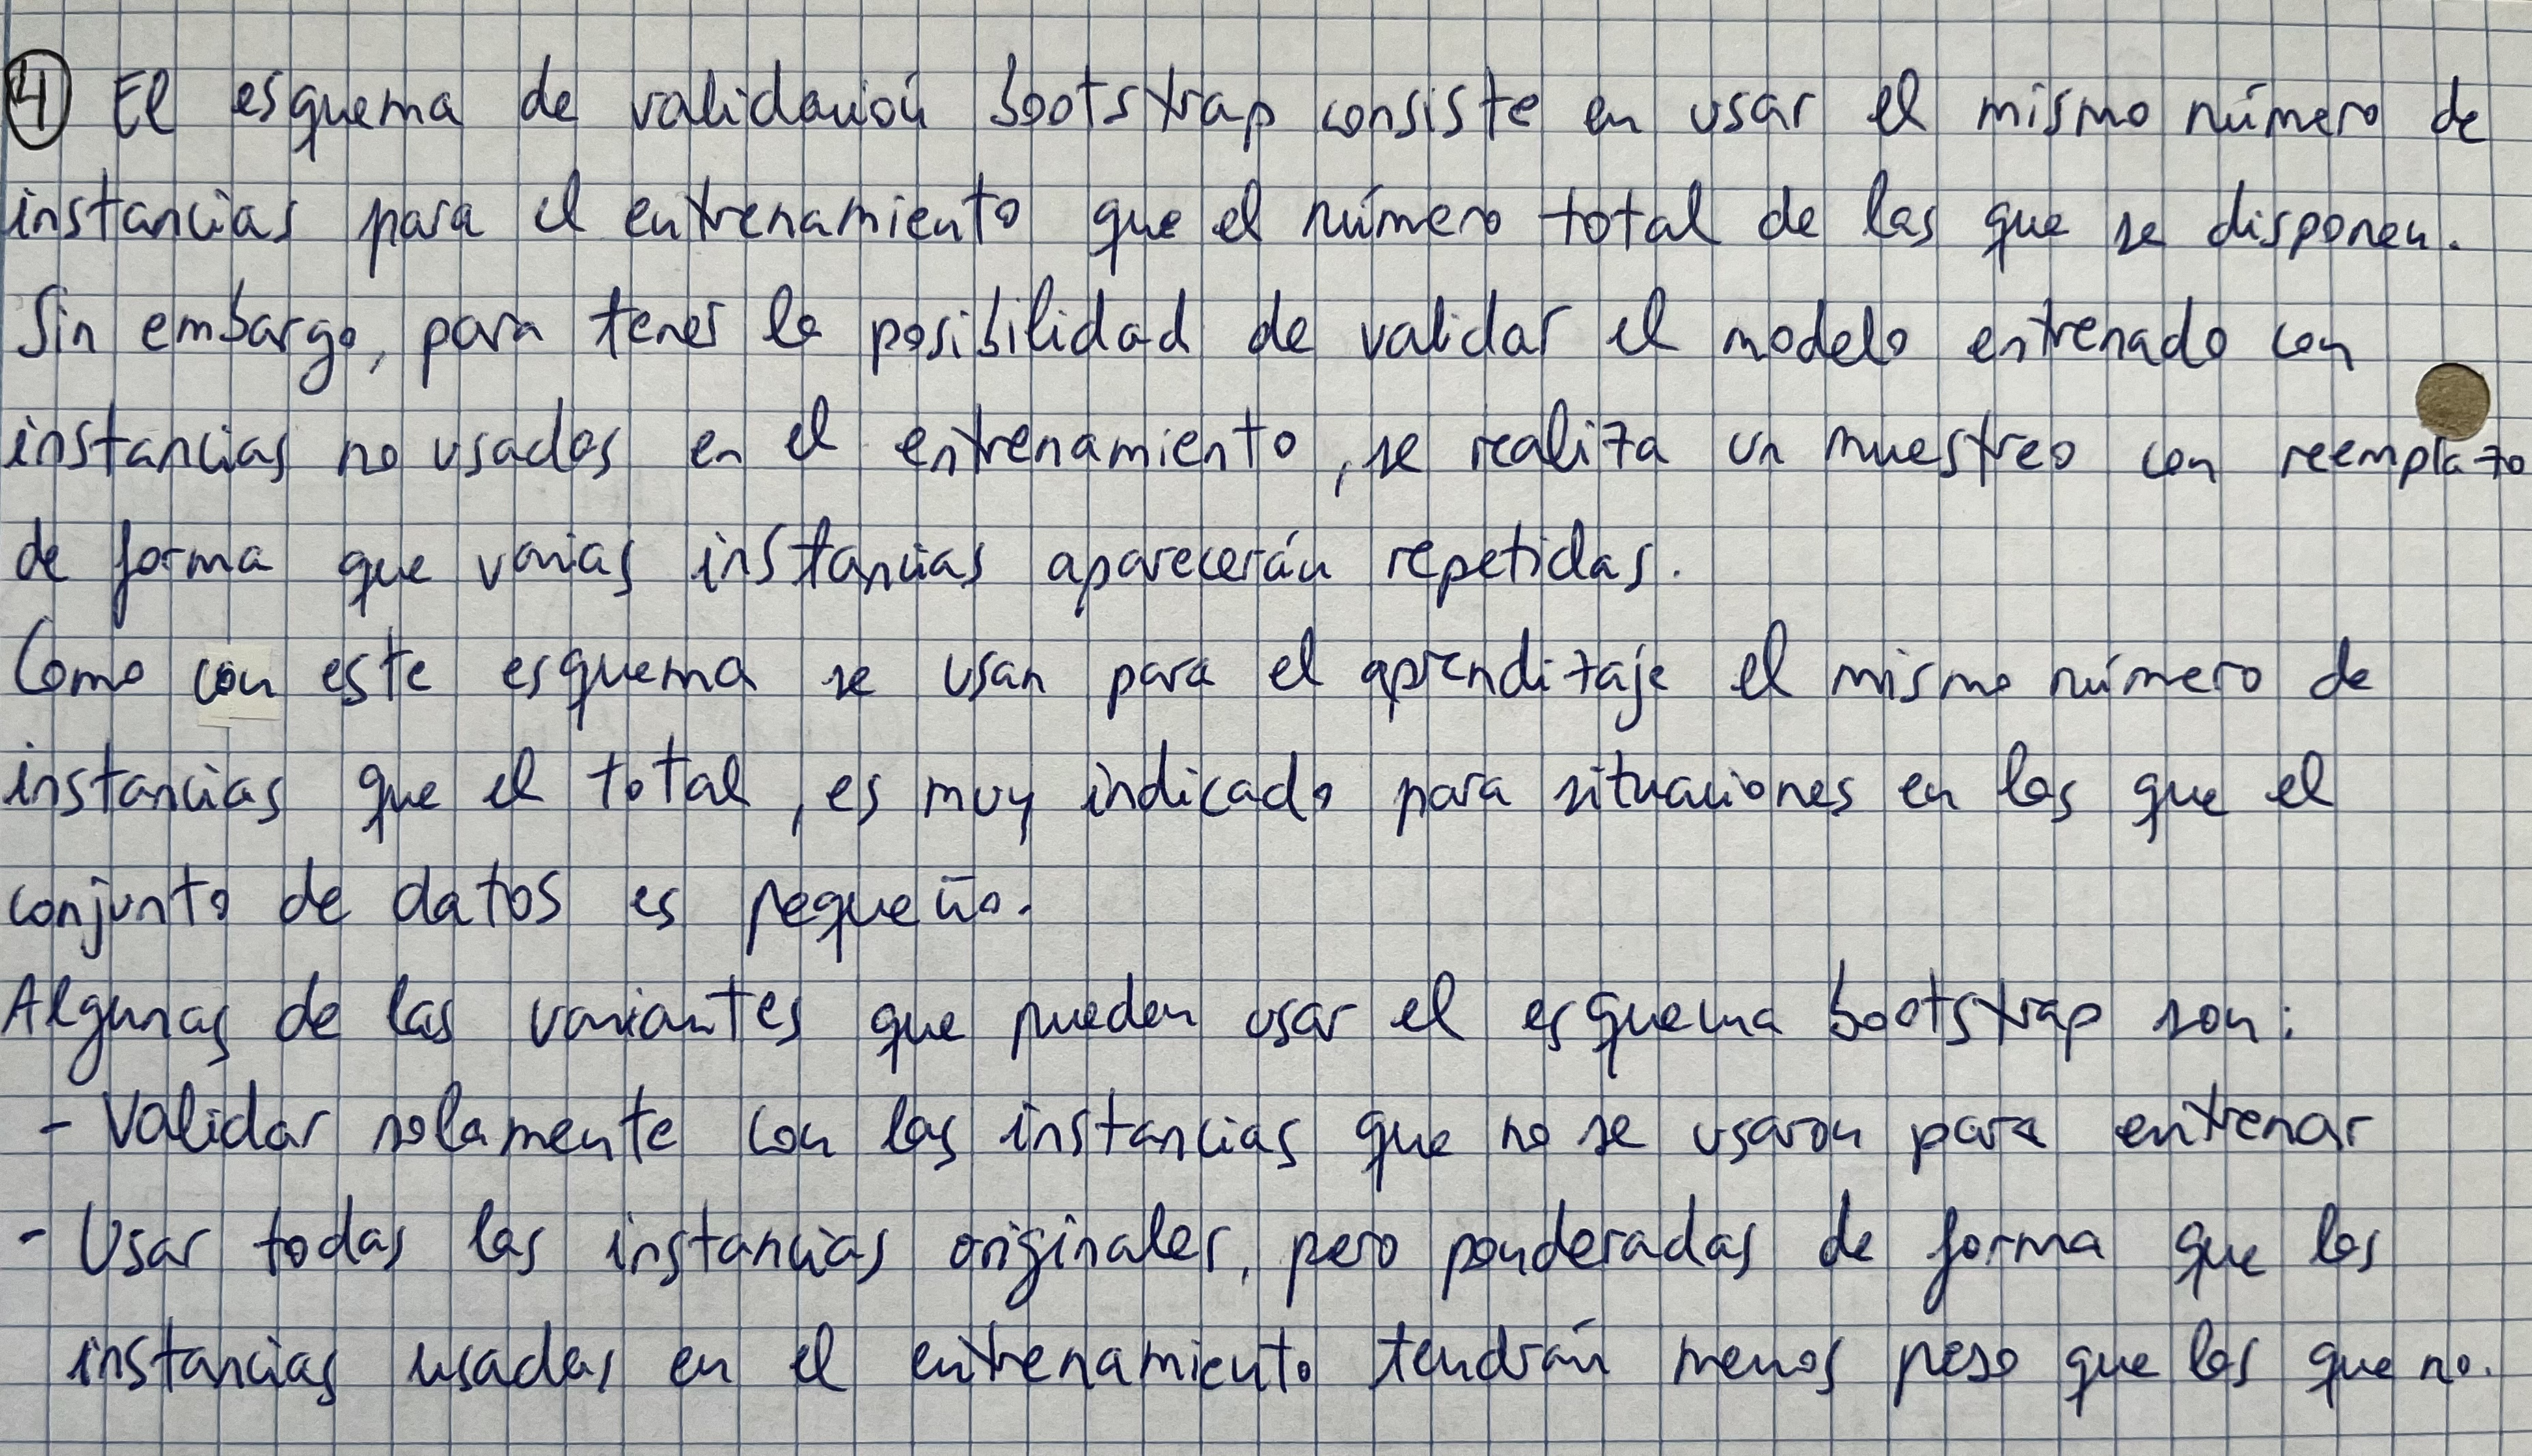 4 El esquema de validación bootstrap consiste en usar el mismo número de
instancias para el entrenamiento que el número total de las que se disponen.
Sin embargo, para tener la posibilidad de validar el modelo entrenado con
instancias no usadas en el entrenamiento, se realiza un muestreo con reemplazo
de forma que varias instancias aparecerán repetidas.
Como con este esquema se usan para el aprendizaje el mismo número de
instancias que el total, es muy indicado para situaciones en las que el
conjunto de datos es pequeño.
Algunas de las variantes que pueden usar el esquema bootstrap son:
- Validar solamente con las instancias que no se usaron para entrenar
- Usar todas las instancias originales, pero ponderadas de forma que las
instancias usadas en el entrenamiento tendrán menos peso que las que no.